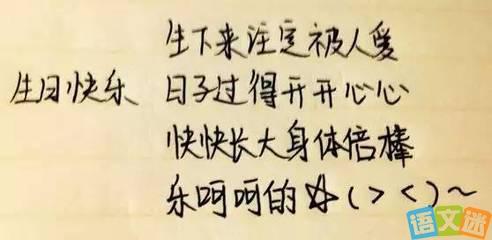 生下来注定被人爱
生日快乐 日子过得开开心心
快快长大身体倍棒
乐呵呵的☆(><)~
语文迷